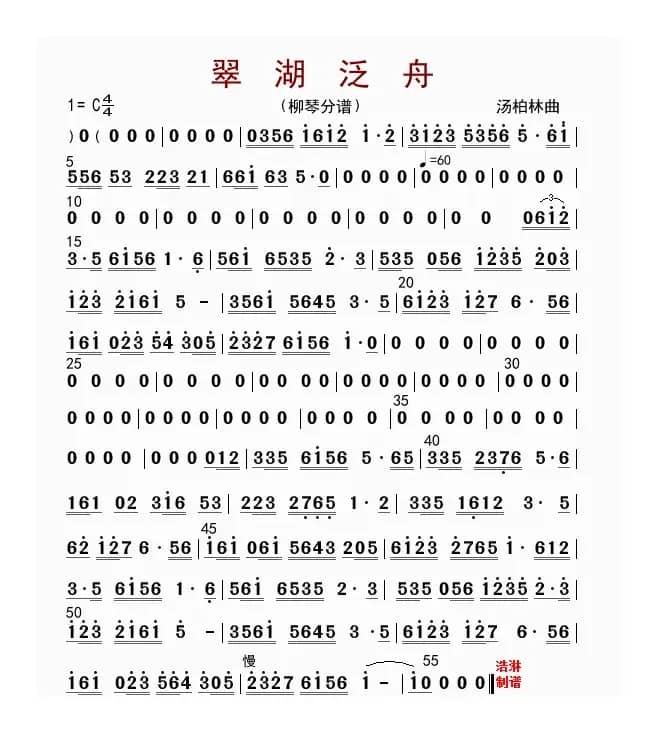 翠湖泛舟
1=C 4/4 (柳琴分谱) 汤柏林曲
)0(000|0000|0356 i6i2 i·2|3i23 5356 5·6i|
5
♩=60
556 53 223 21|66i 63 5·0|0000|0000|0000|
10
3
0000|0000|0000|0000|00 06i2|
15
3·5 6i56 1·6|56i 6535 2·3|535 056 i235 203|
20
i23 2i6i 5-|356i 5645 3·5|6i23 i27 6·56|
i6i 023 54 305|2327 6i56 i·0|0000|0000|
25
30
0000|0000|0000|0000|0000|
35
0000|0000|0000|0000|0000|
40
0000|00 0012|335 6i56 5·65|335 2376 5·6|
161 02 3i6 53|223 2765 1·2|335 1612 3·5|
45
62 i27 6·56|i6i 06i 5643 205|6i23 2765 i·612|
3·5 6i56 1·6|56i 6535 2·3|535 056 i235 2·3|
50
i23 2i6i 5-|356i 5645 3·5|6i23 i27 6·56|
慢
55
浩淋
i6i 023 564 305|2327 6i56 i-|i0000‖
制谱